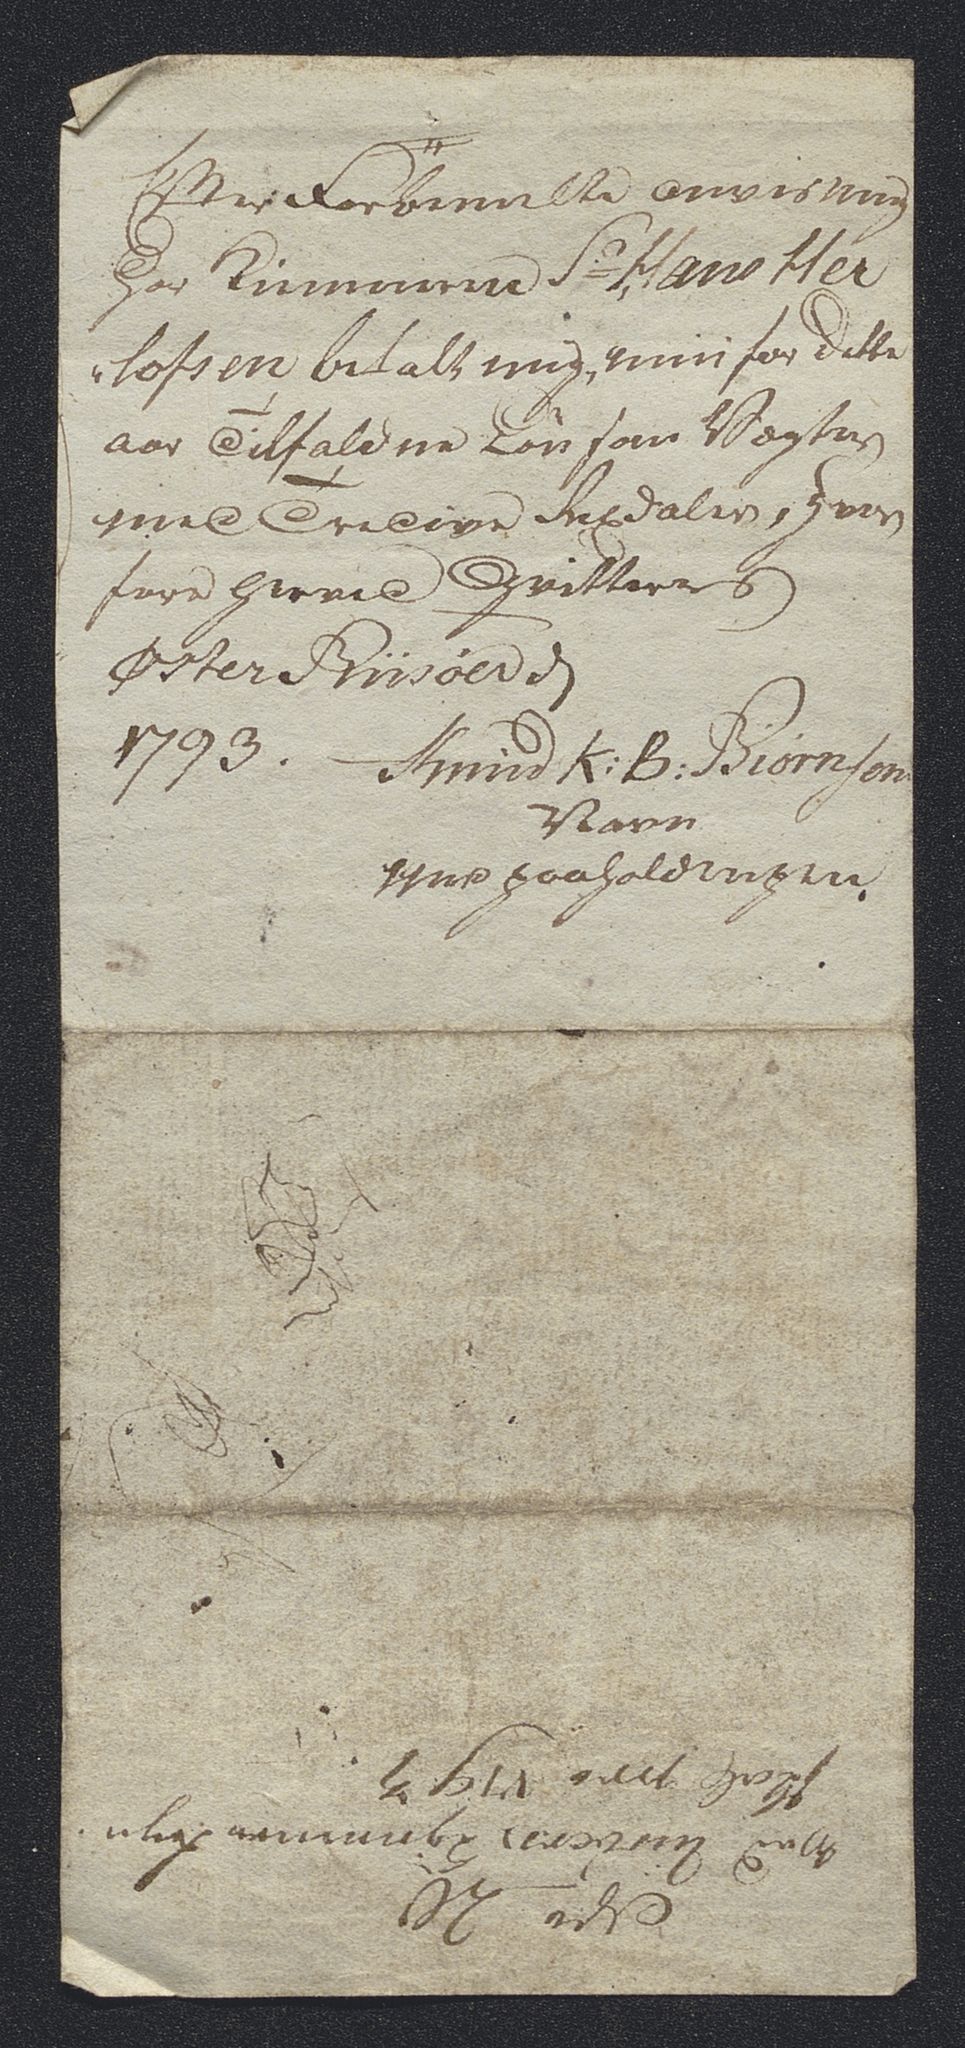 Efter Forbemelte anvisning
har Kiemneren Sr Hans Her
„lofsen betalt mig, min for dette
aar Tilfaldne Løn som Vægter
med Tredive Rixdaler, hvor
fore herved Qvitteres
Øster Riisøer d
1793. Amund K: B: Biørnson
Navn
med paaholden pen.
No
Ved
pro 1793